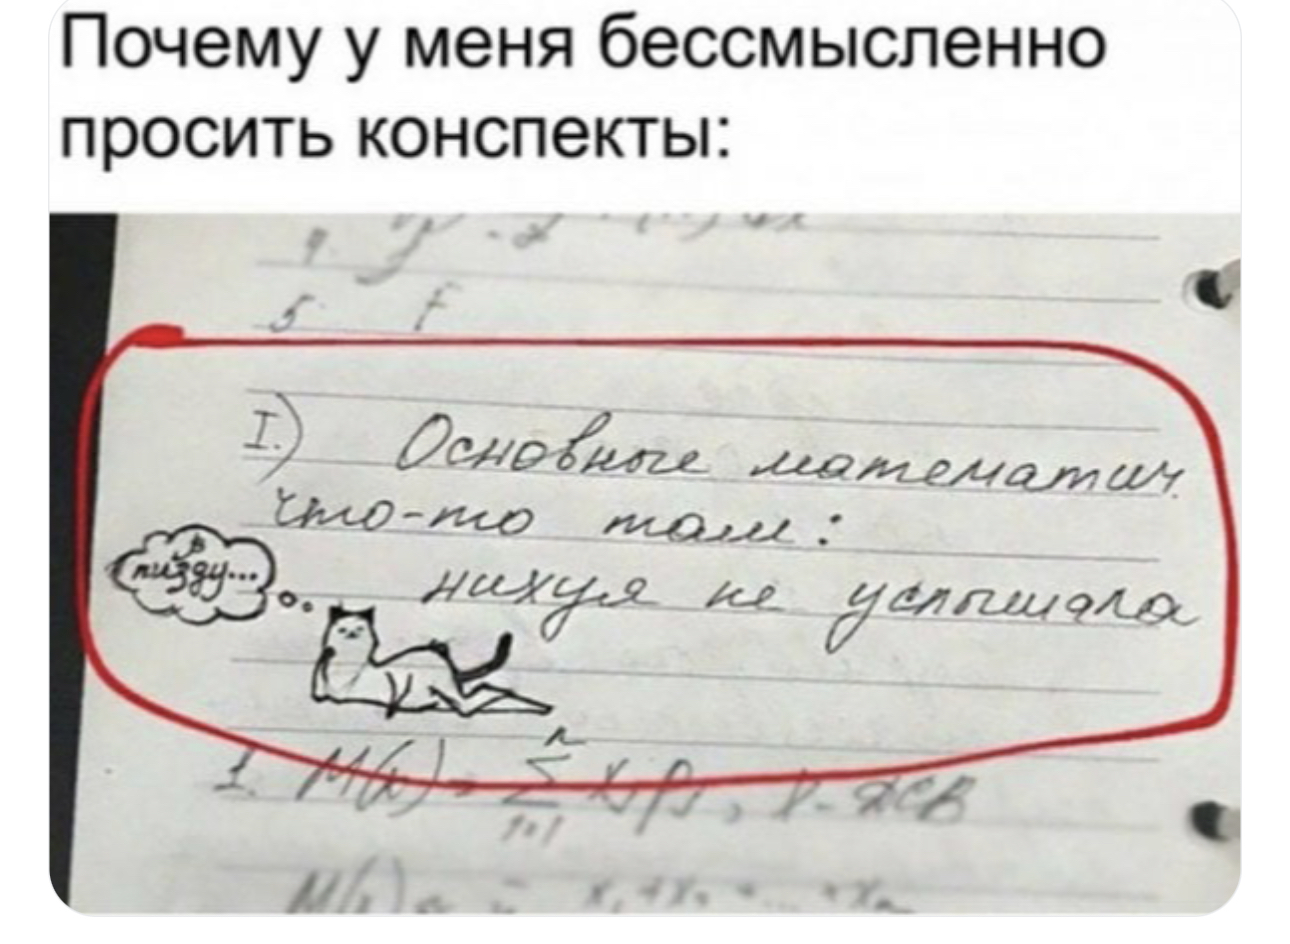 Почему у меня бессмысленно
просить конспекты:
4.
5. f
I.) Основные математич.
что-то там:
в
пизду...
нихуя не услышала
1. M(x) = n Σ i=1 xi pi, X - ДСВ
M(x) =